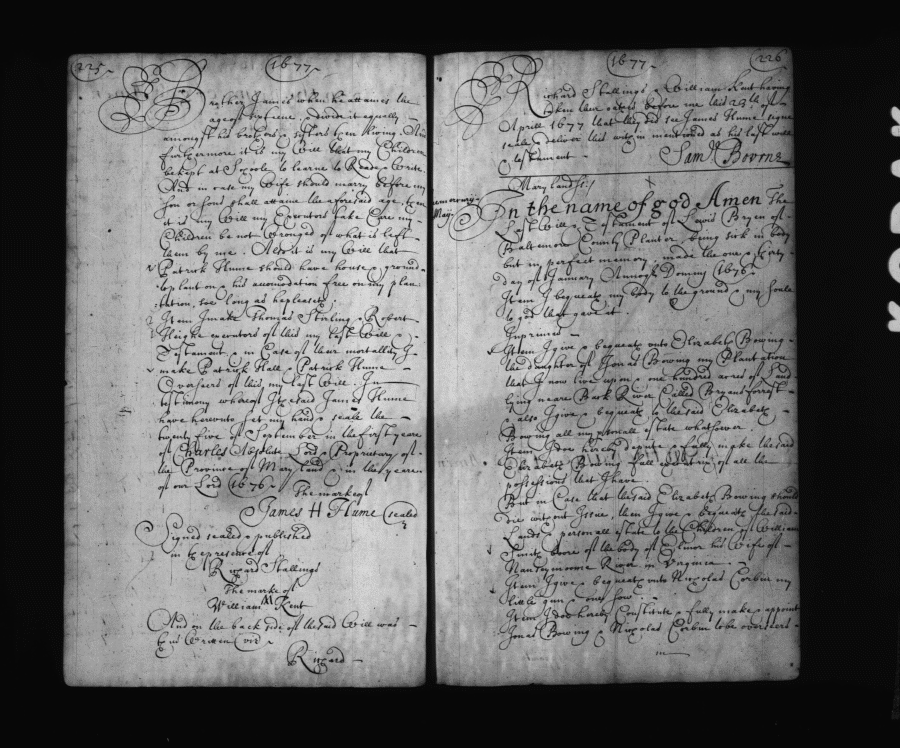 225
1677
Brother James when he attaines the
age of sixteene, & divide it equally
amongst his brothers & sisters then living. And
furthermore it is my Will that my Children
be kept at Schoole to learne to Reade & Write.
And in case my Wife should marry before my
son or sons shall attaine the aforesaid age, then
it is my Will my Executors take Care my
Children be not Wronged of what is left
them by me. Alsoe it is my Will that
Patrick Hume should have house & ground
to plant on & his accomodation free on my plan
tation, soe long as he pleaseth
Item I make Thomas Sterling & Robert
Heighe executors of this my last Will &
Testament & in Case of their mortallity I
make Patrick Hall & Patrick Hume
Overseers of this my last Will. In
testimony whereof I the said James Hume
have hereunto set my hand & seale the
twenty five of September in the first yeare
of Charles Absolute Lord & Proprietary of
the Province of Mary land & in the yeare
of our Lord 1676
The marke of
James H Hume sealed
Signed sealed & published
in the presence of
Richard Stallings
The marke of
William Kent
And on the back side of the said Will was
thus Written vizt
Richard
1677
226
Richard Stallings & William Kent having
taken their oathes before me this 29th of
Aprill 1677 that they did see James Hume signe
seale & deliver this within mentioned as his last will
& testament
Saml Bourne
Maryland ss
In the name of god Amen The
Last Will & Testament of Lewis Bryen of
Baltemore County Planter being sick in body
but in perfect memory, made the one & thirty
day of January Annoqe Domini 1676
Item I bequeath my body to the ground & my soule
to god that gave it.
Inprimes
Item I give & bequeath unto Elizabeth Bowing
the daughter of Jonas Bowing my Plantation
that I now live upon & one hundred acres of Land
lying neare Back River Called Bryans forrest
& also I give & bequeath to the said Elizabeth
Bowing all my personall estate whatsoever
Item I doe hereby depute & fully make the said
Elizabeth Bowing full executrix of all the
possessions that I have.
But in Case that the said Elizabeth Bowing should
die without Issue, then I give & bequeath the said
Lands & personall estate to the Children of William
Smith borne of the body of Elinor his Wife of
River in Virginia
Item I give & bequeath unto Nicholas Corbin my
little gun & one
Item I doe hereby Constitute & fully make & appoint
Jonas Bowing & Nicholas Corbin to be overseers
KODAK